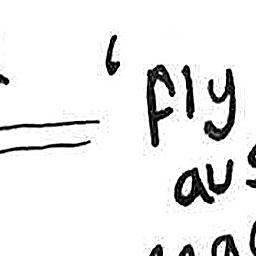 ‘fly
aus